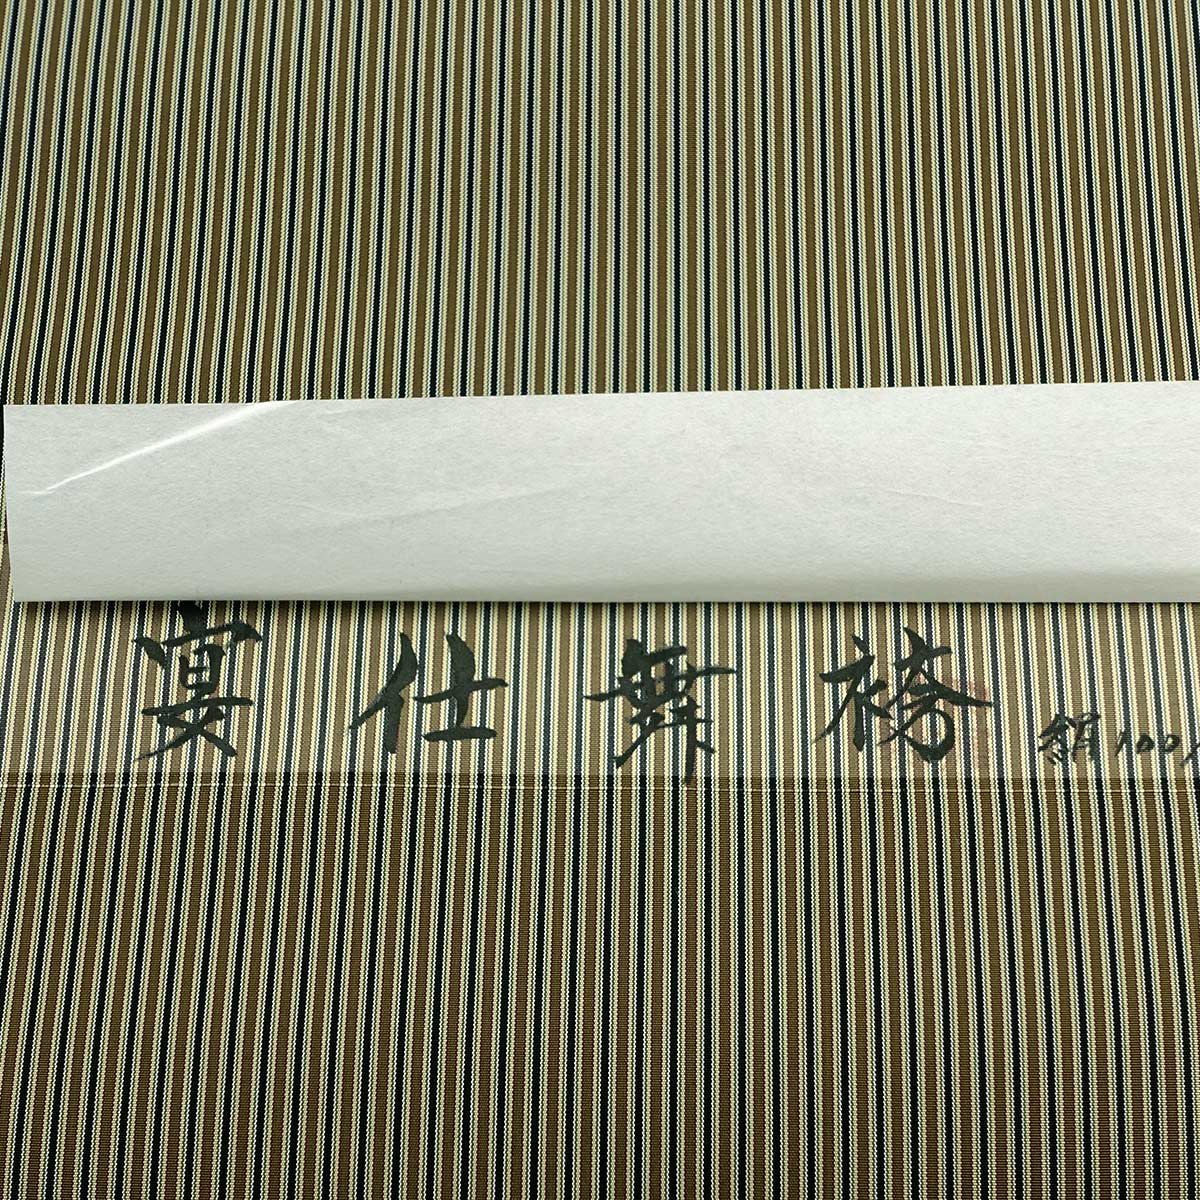 宴仕舞袴 絹100%